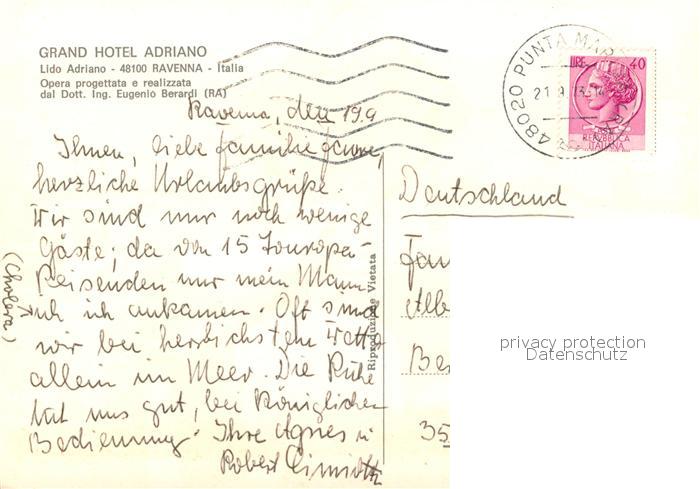 GRAND HOTEL ADRIANO
Lido Adriano - 48100 RAVENNA - Italia
Opera progettata e realizzata
dal Dott. Ing. Eugenio Berardi (RA)
Ravenna, den 19.9
Ihnen, liebe Familie
herzliche Urlaubsgrüße.
Wir sind nur noch wenige
Gäste, da von 15 Touropa-
Reisenden nur mein Mann
u. ich ankamen. Oft sind
(Cholera)
wir bei herrlichstem Wetter
allein im Meer. Die Ruhe
tut uns gut, bei königlicher
Bedienung. Ihre Agnes u
Robert
Riproduzione Vietata
48020 PUNTA MAR
21 9 73
LIRE 40
REPUBBLICA
ITALIANA
Deutschland
Fam
Alb
Be
35
privacy protection
Datenschutz